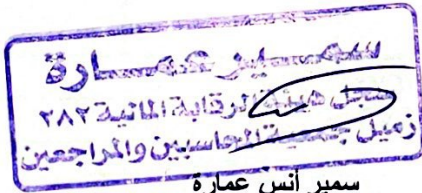 سمير عمارة
سجل هيئة الرقابة المالية ٢٨٢
زميل جمعية المحاسبين والمراجعين
سمير أنس عمارة